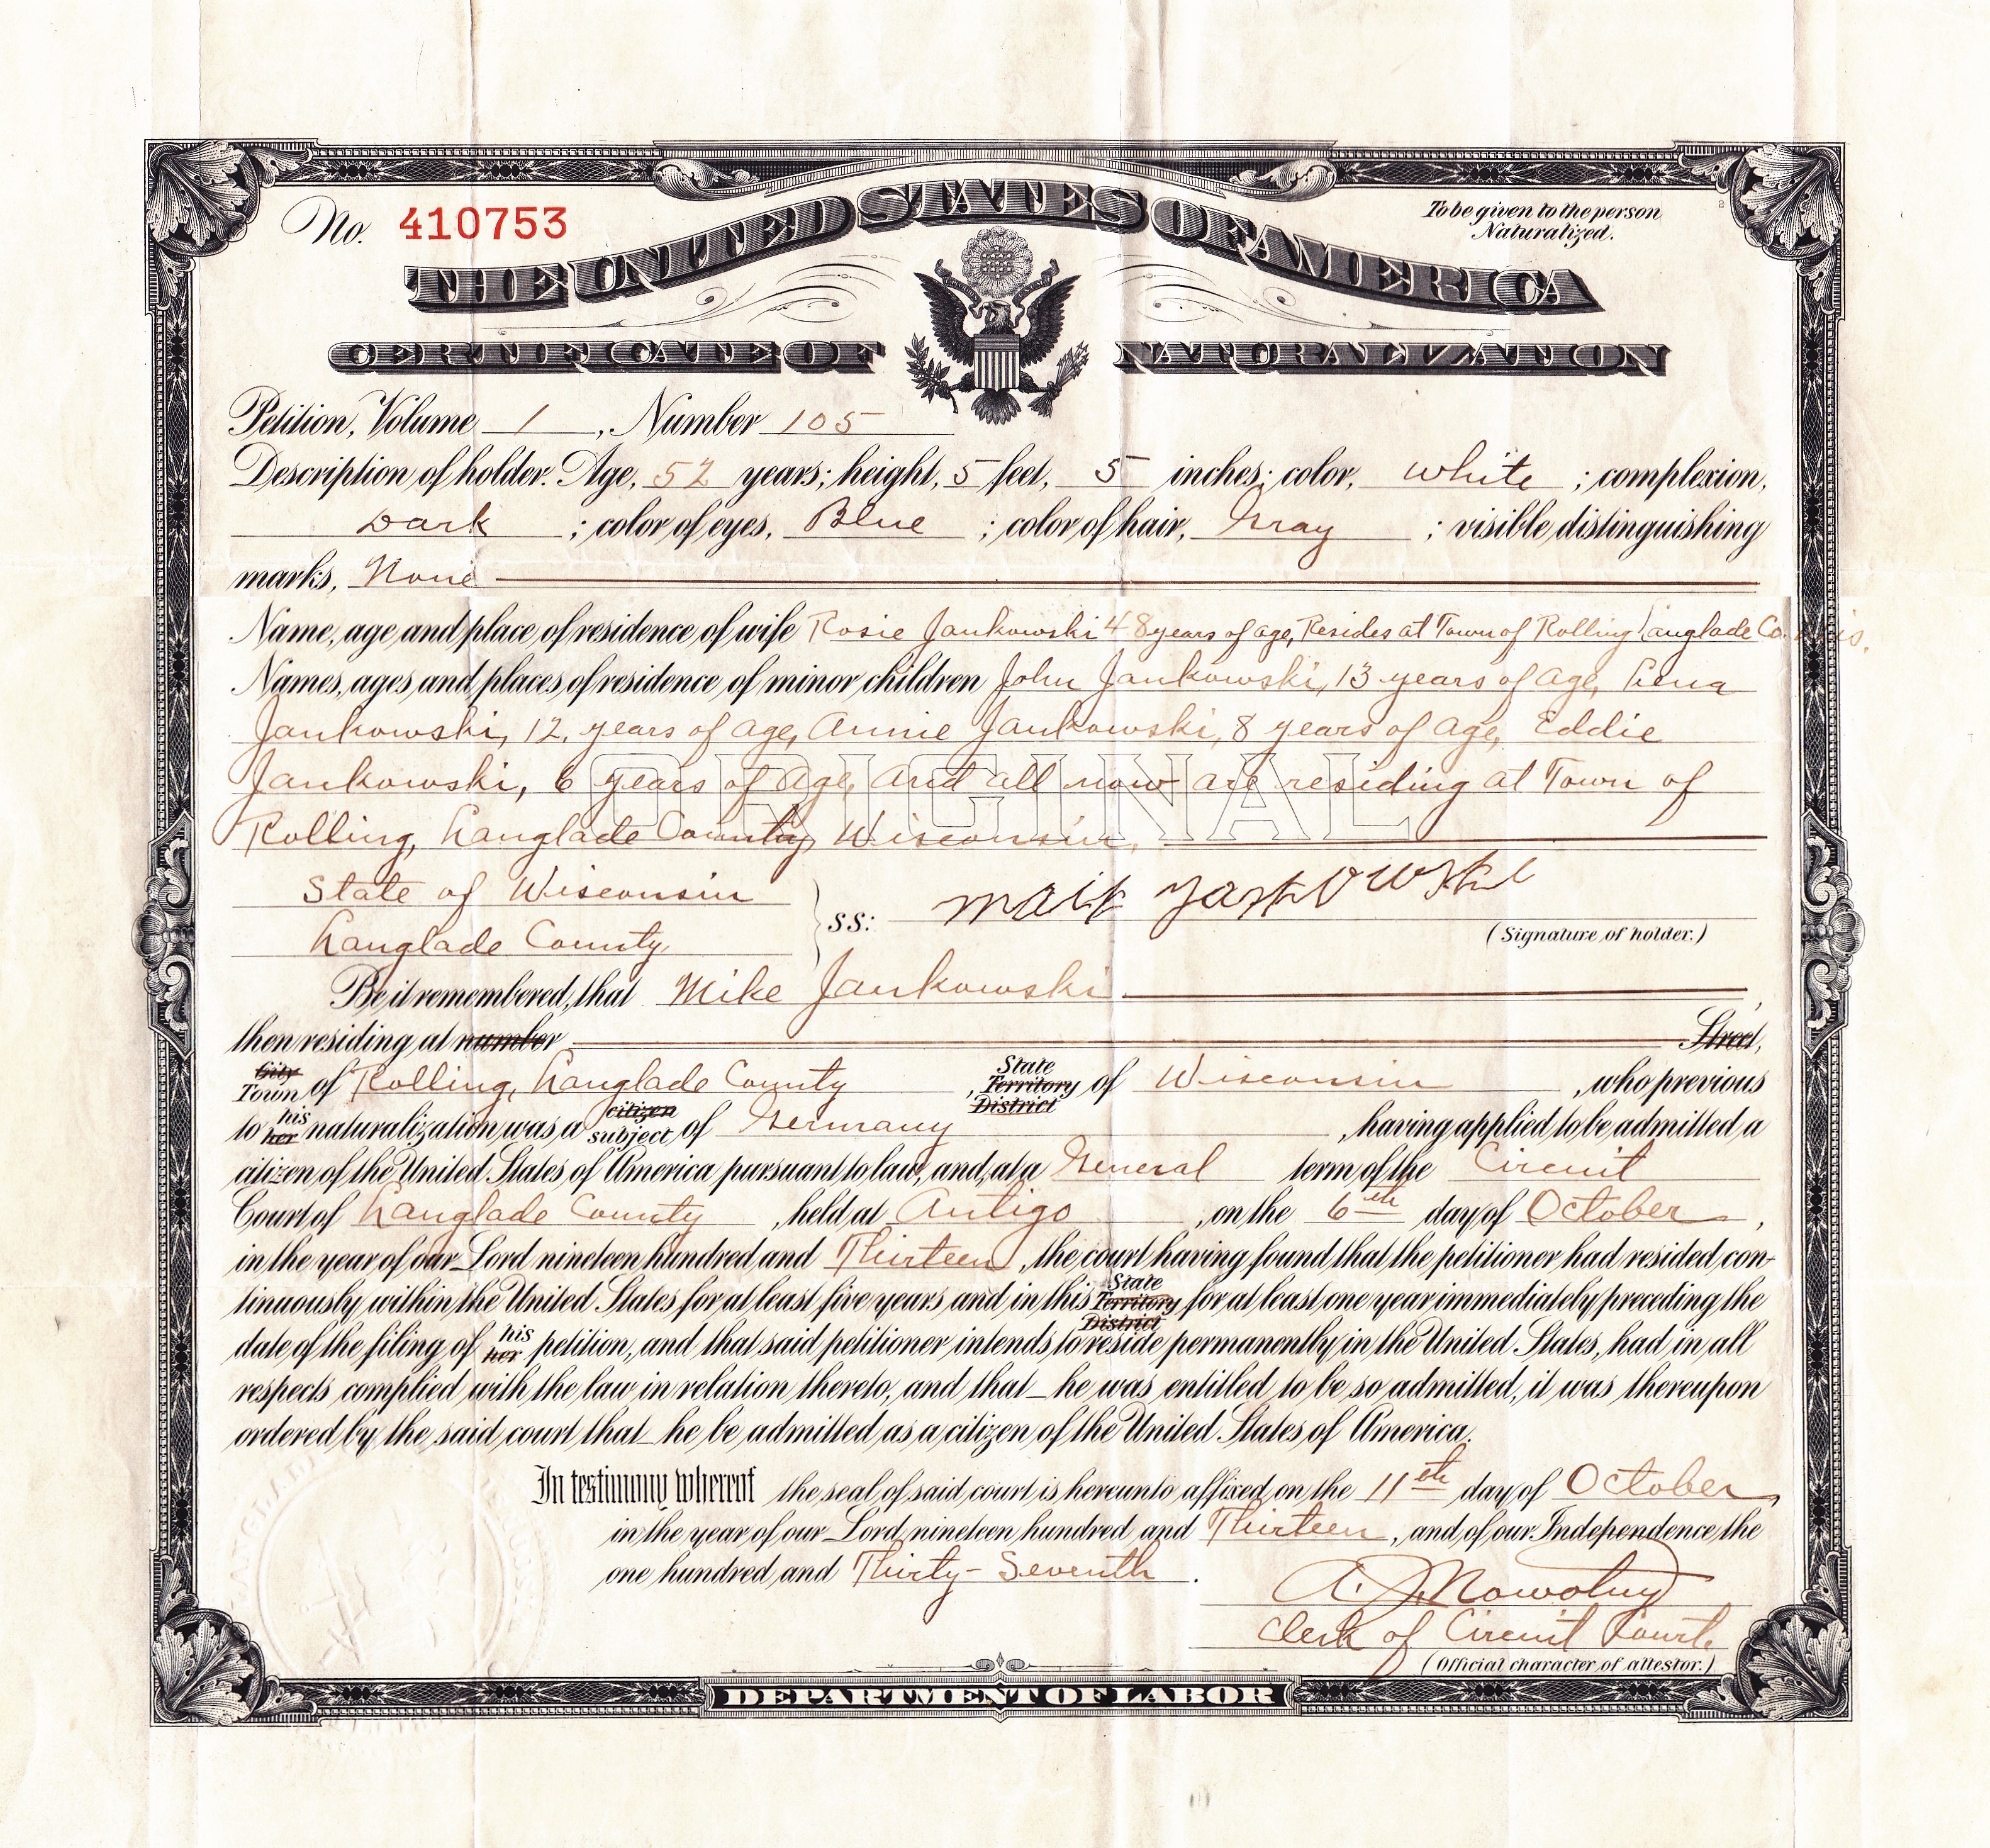 No. 410753
To be given to the person
Naturalized.
THE UNITED STATES OF AMERICA
CERTIFICATE OF NATURALIZATION
Petition, Volume 1, Number 105
Description of holder. Age, 52 years; height, 5 feet, 5 inches; color, White; complexion,
Dark; color of eyes, Blue; color of hair, Gray; visible distinguishing
marks, None
Name, age and place of residence of wife Rosie Jankowski 48 years of age, Resides at Town of Rolling Langlade Co. Wis.
Names, ages and places of residence of minor children John Jankowski, 13 years of age, Lena
Jankowski, 12, years of age, Annie Jankowski, 8 years of age, Eddie
Jankowski, 6 years of age, and all now are residing at Town of
Rolling, Langlade County, Wisconsin.
ORIGINAL
State of Wisconsin
Langlade County
ss:
(Signature of holder.)
Be it remembered, that Mike Jankowski,
then residing at number Street,
City
Town of Rolling, Langlade County, State Territory District of Wisconsin, who previous
to his her naturalization was a citizen subject of Germany, having applied to be admitted a
citizen of the United States of America pursuant to law, and, at a General term of the Circuit
Court of Langlade County, held at Antigo, on the 6th day of October,
in the year of our Lord nineteen hundred and Thirteen, the court having found that the petitioner had resided con-
tinuously within the United States for at least five years and in this State Territory District for at least one year immediately preceding the
date of the filing of his her petition, and that said petitioner intends to reside permanently in the United States, had in all
respects complied with the law in relation thereto, and that he was entitled to be so admitted, it was thereupon
ordered by the said court that he be admitted as a citizen of the United States of America.
In testimony whereof the seal of said court is hereunto affixed on the 11th day of October,
in the year of our Lord nineteen hundred and Thirteen, and of our Independence the
one hundred and Thirty-Seventh.
A. J. Nowotny
Clerk of Circuit Court.
(Official character of attestor.)
DEPARTMENT OF LABOR